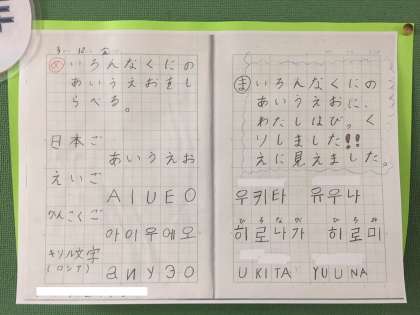 3. 12. 金
め いろんなくにの
あいうえおをし
らべる。
日本ご
あいうえお
えいご
AIUEO
かんこくご
아이우에오
キリル文字
(ロシア)
аиуэо
ま いろんなくにの
あいうえおに、
わたしはび。く
りしました!!
えに見えました。
우키타 유우나
ひろなが ひろみ
히로나가 히로미
UKITA YUUNA